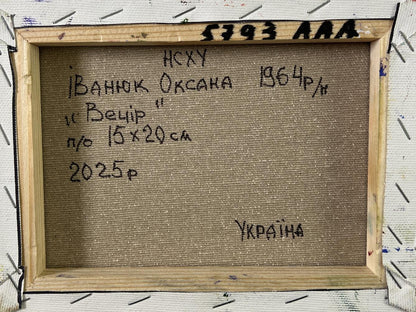 5793 ЛЛЛ
НСХУ
Іванюк Оксана 1964р/н
„Вецір"
п/о 15х20см
2025р
Україна